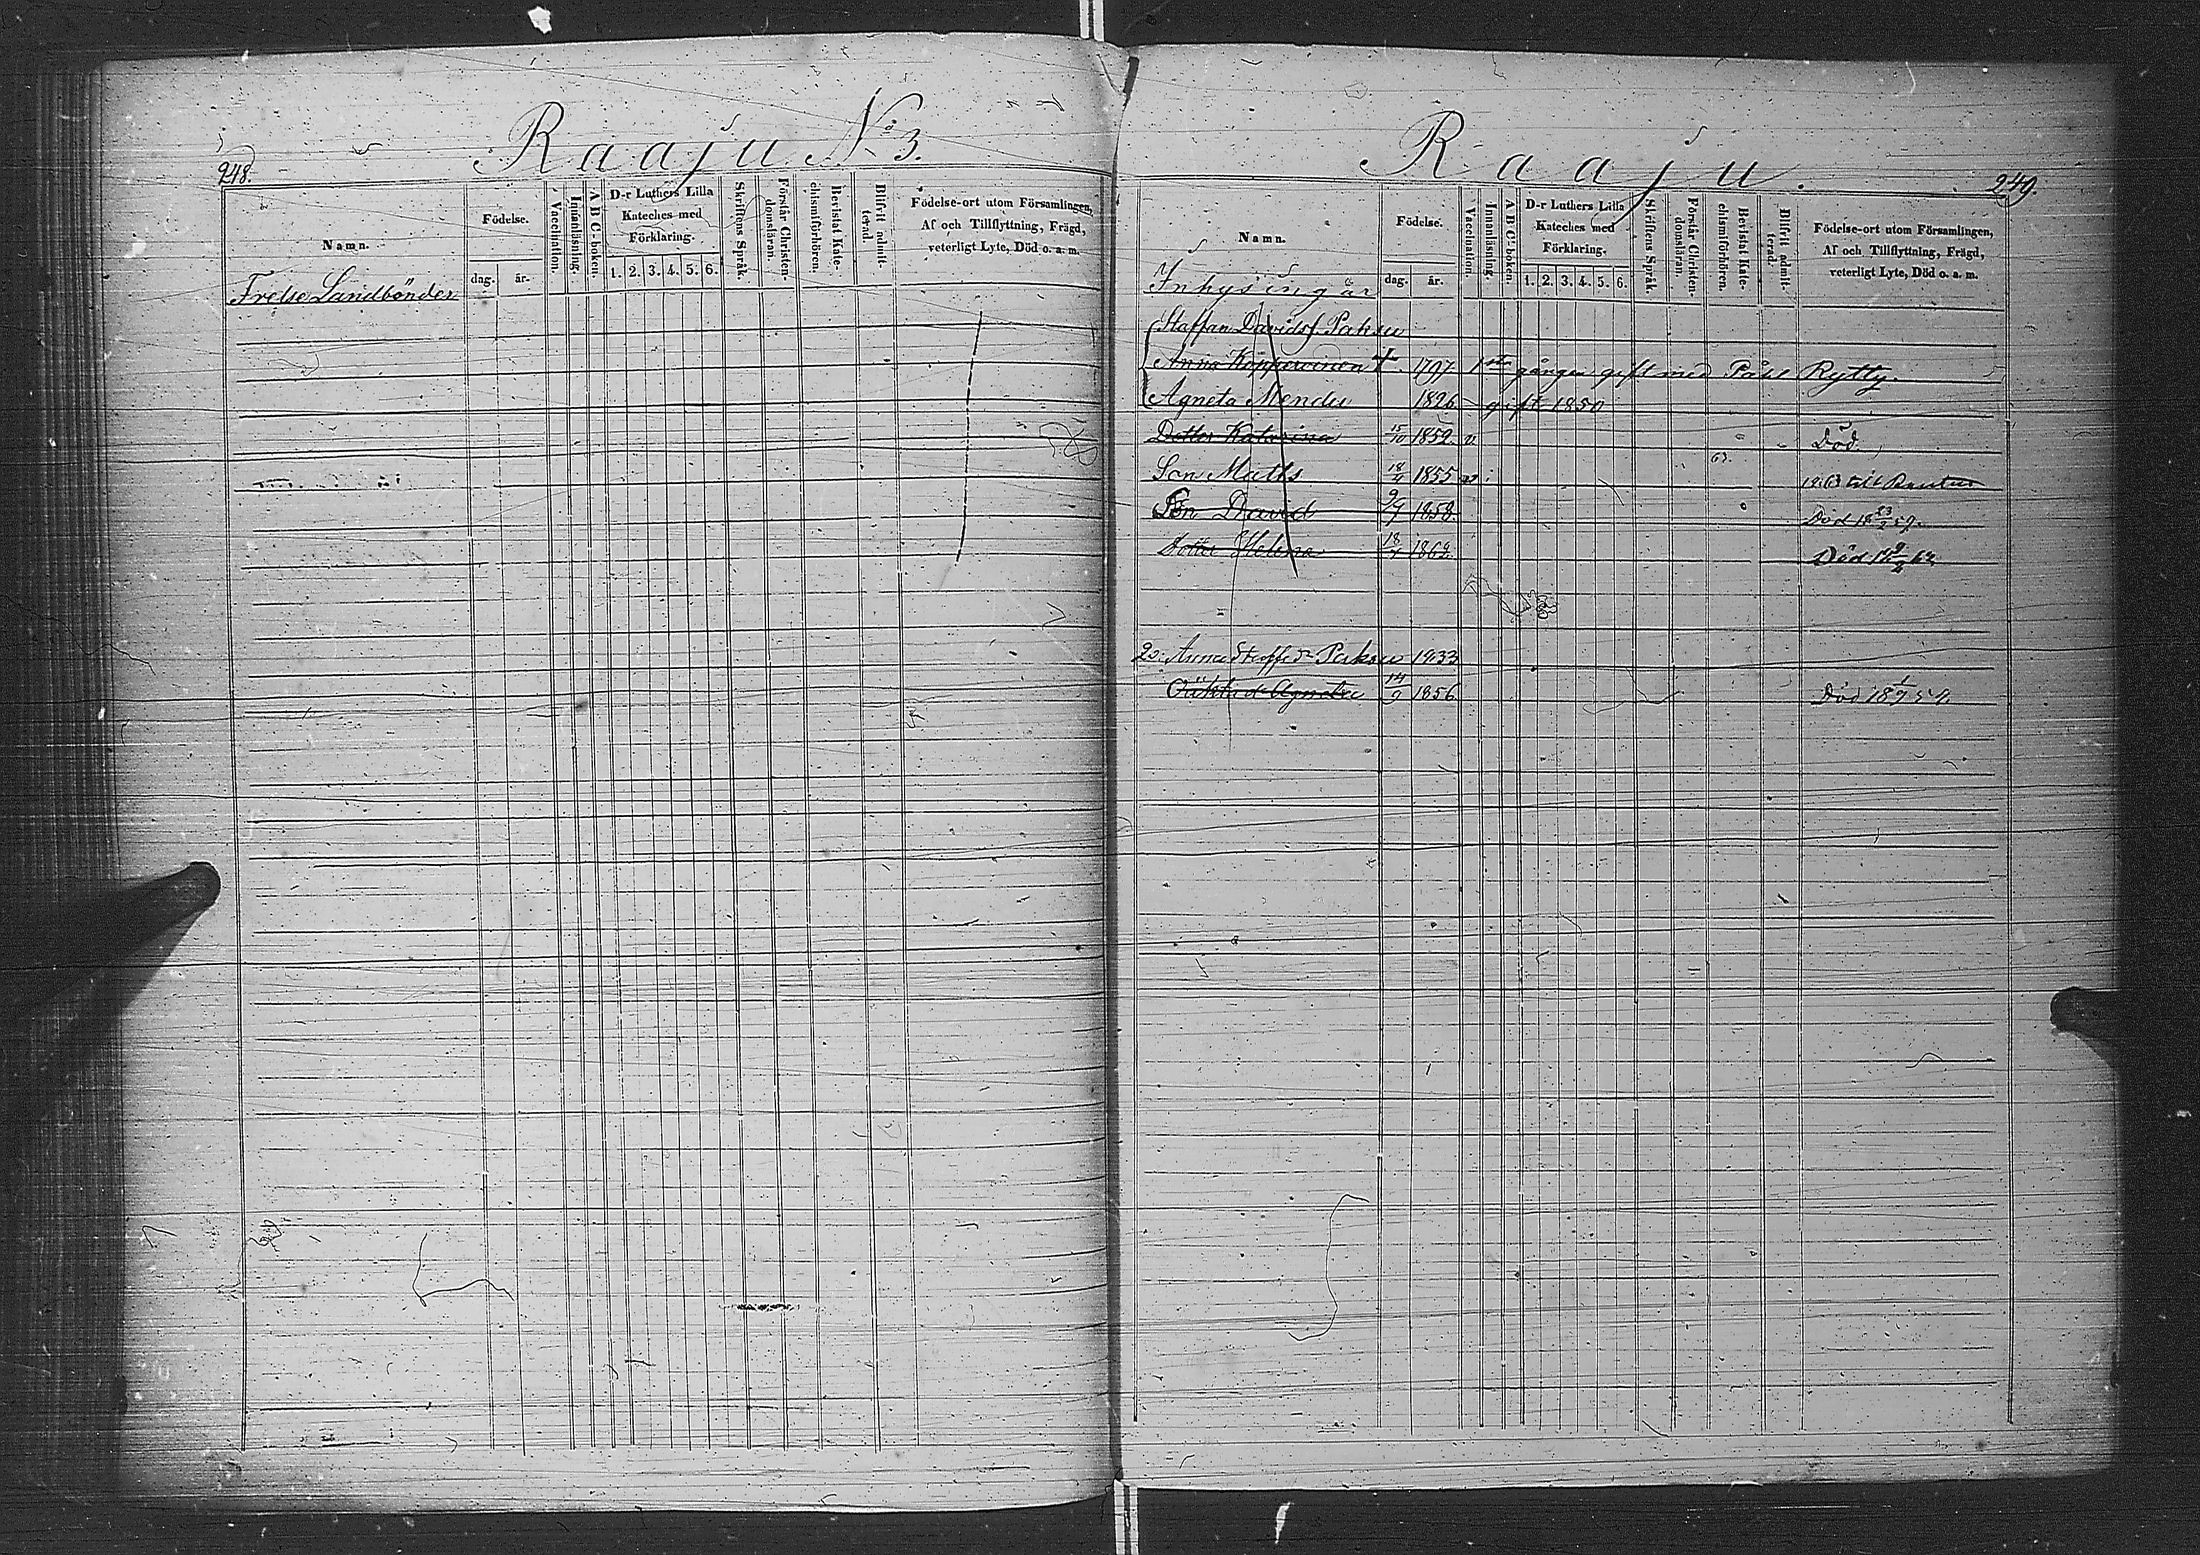 248.
Raaju No 3.
Namn.
Födelse.
dag.
år.
Vaccination.
Innanläsning.
A B C-boken.
D-r Luthers Lilla
Kateches med
Förklaring.
1. 2. 3. 4. 5. 6.
Skriftens Språk.
Förstår Christen-
domsläran.
Bevistat Kate-
chismiförhören.
Blifvit admit-
terad.
Födelse-ort utom Församlingen,
Af och Tillflyttning, Frägd,
veterligt Lyte, Död o. a. m.
Frelse Landbönder
Raaju.
249.
Namn.
Födelse.
dag.
år.
Vaccination.
Innanläsning.
A B C-boken.
D-r Luthers Lilla
Kateches med
Förklaring.
1. 2. 3. 4. 5. 6.
Skriftens Språk.
Förstår Christen-
domsläran.
Bevistat Kate-
chismiförhören.
Blifvit admit-
terad.
Födelse-ort utom Församlingen,
Af och Tillflyttning, Frägd,
veterligt Lyte, Död o. a. m.
Inhysingar
Staffan Davidsf. Paksu
Anna Kopperoinen + 1797 1sta gången gift med Påhl Rytty.
Agneta Mendu 1826 gift 1850
Dotter Katarina 15/10 1852. v. Död.
Son Matts 18/4 1855 v. 63. 1863 till Rautus
Son David 9/7 1858. Död 18 23/2 59.
Dotter Helena 18/7 1862. Död 18 9/2 62
2o. Anna Staffsdr Paksu 1833
Oäkta dr Agneta 14/9 1856 Död 18 1/9 57.